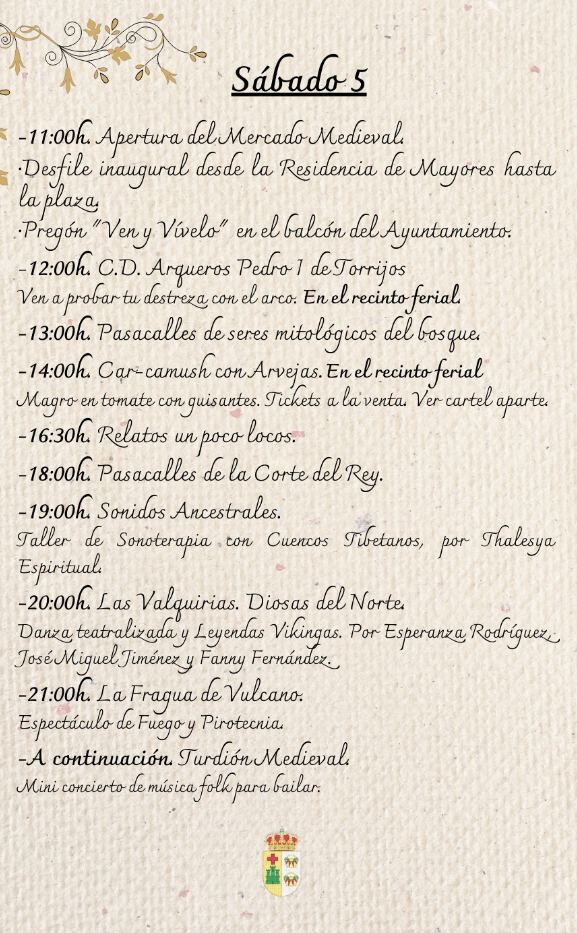 Sábado 5
-11:00h. Apertura del Mercado Medieval.
·Desfile inaugural desde la Residencia de Mayores hasta
la plaza.
·Pregón "Ven y Vívelo" en el balcón del Ayuntamiento.
-12:00h. C.D. Arqueros Pedro I de Torrijos
Ven a probar tu destreza con el arco. En el recinto ferial.
-13:00h. Pasacalles de seres mitológicos del bosque.
-14:00h. Car-camush con Arvejas. En el recinto ferial
Magro en tomate con guisantes. Tickets a la venta. Ver cartel aparte.
-16:30h. Relatos un poco locos.
-18:00h. Pasacalles de la Corte del Rey.
-19:00h. Sonidos Ancestrales.
Taller de Sonoterapia con Cuencos Tibetanos, por Thalesya
Espiritual.
-20:00h. Las Valquirias. Diosas del Norte.
Danza teatralizada y Leyendas Vikingas. Por Esperanza Rodríguez,
José Miguel Jiménez y Fanny Fernández.
-21:00h. La Fragua de Vulcano.
Espectáculo de Fuego y Pirotecnia.
-A continuación. Turdión Medieval.
Mini concierto de música folk para bailar.